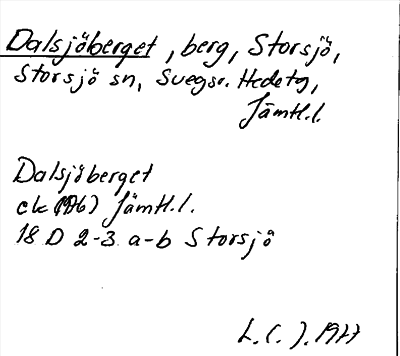 Dalsjöberget, berg, Storsjö,
Storsjö sn, Svegs o. Hede tg,
Jämtl. l.
Dalsjöberget
ek (1976) Jämtl. l.
18 D 2-3 a-b Storsjö
L. C. J. 1977